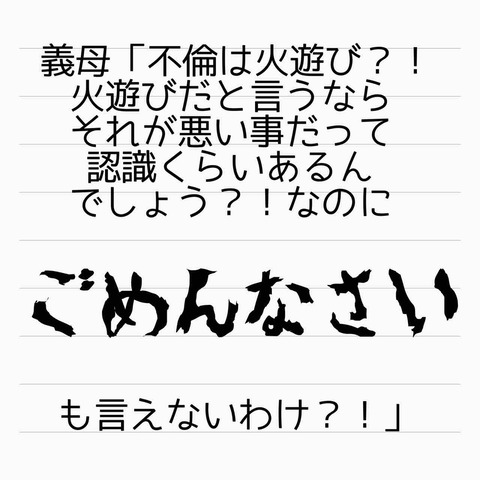 義母「不倫は火遊び？！
火遊びだと言うなら
それが悪い事だって
認識くらいあるん
でしょう？！なのに
ごめんなさい
も言えないわけ？！」